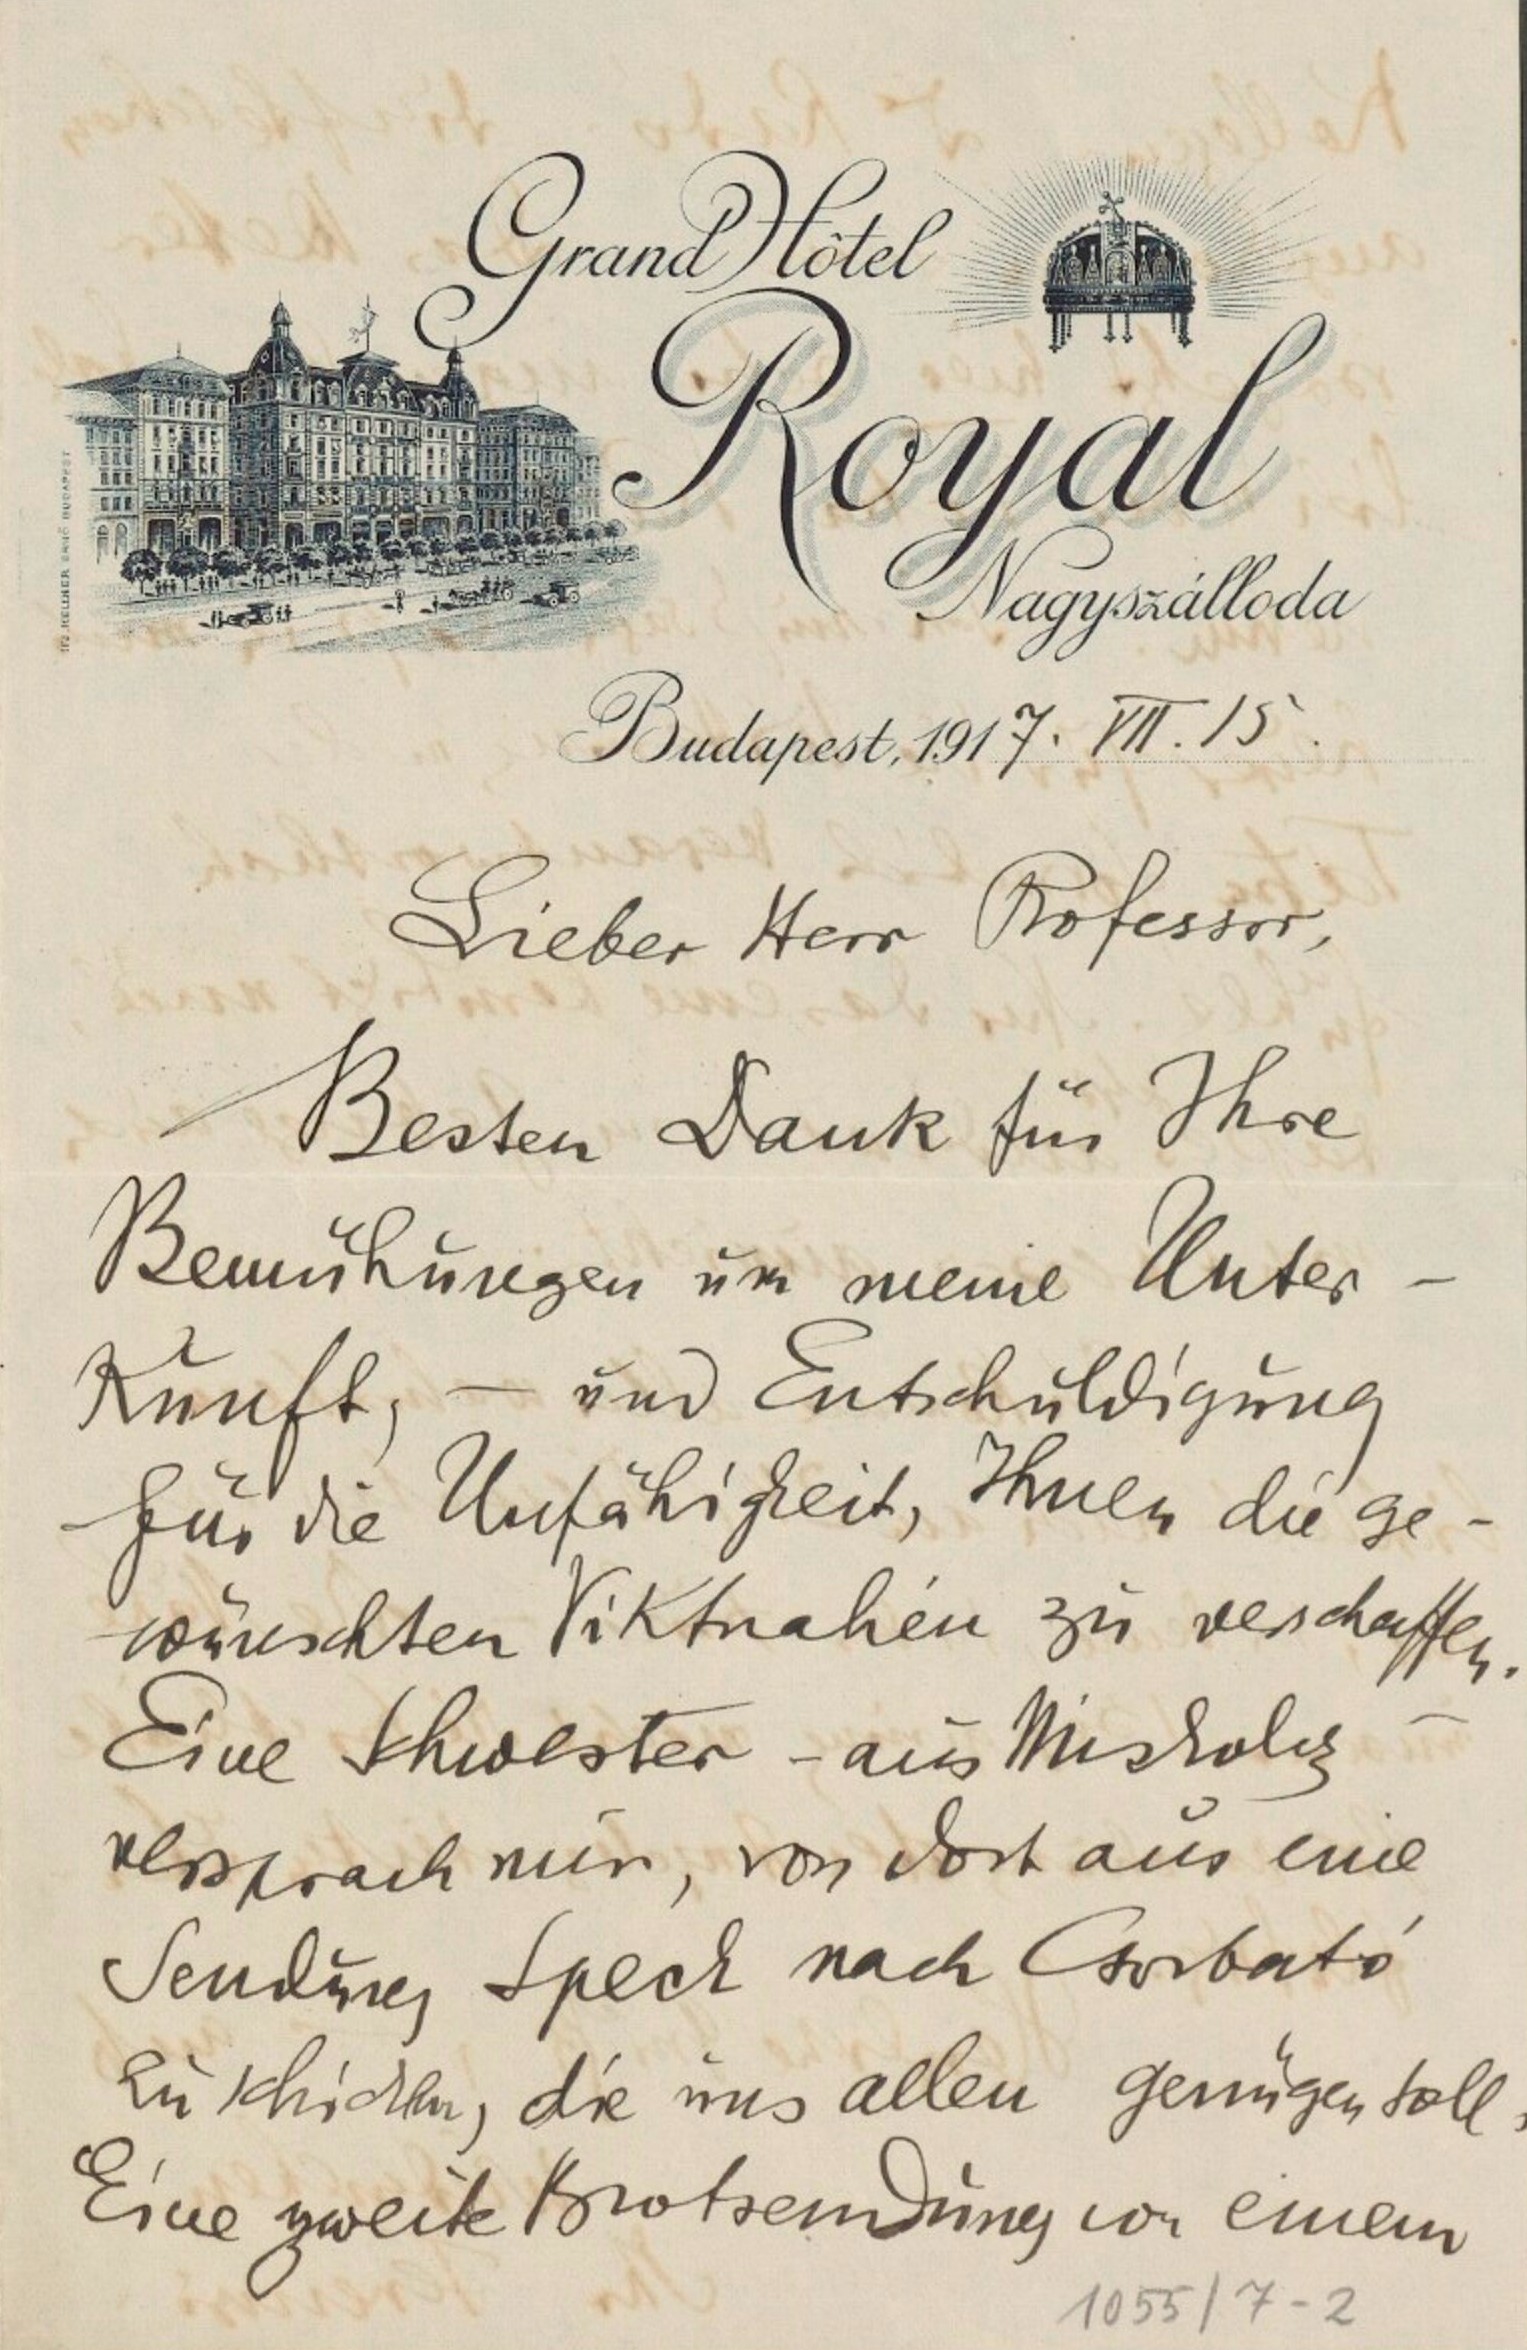 Grand Hôtel
Royal
Nagyszálloda
Budapest, 1917. VII. 15.
Lieber Herr Professor,
Besten Dank für Ihre
Bemühungen um meine Unter-
kunft, – und Entschuldigung
für die Unfähigkeit, Ihnen die ge-
wünschten Viktualien zu verschaffen.
Eine Schwester – aus Miskolcz –
versprach mir, von dort aus eine
Sendung Speck nach Csorbató
zu schicken, die uns allen genügen soll.
Eine zweite Brotsendung von einem
1055/7-2